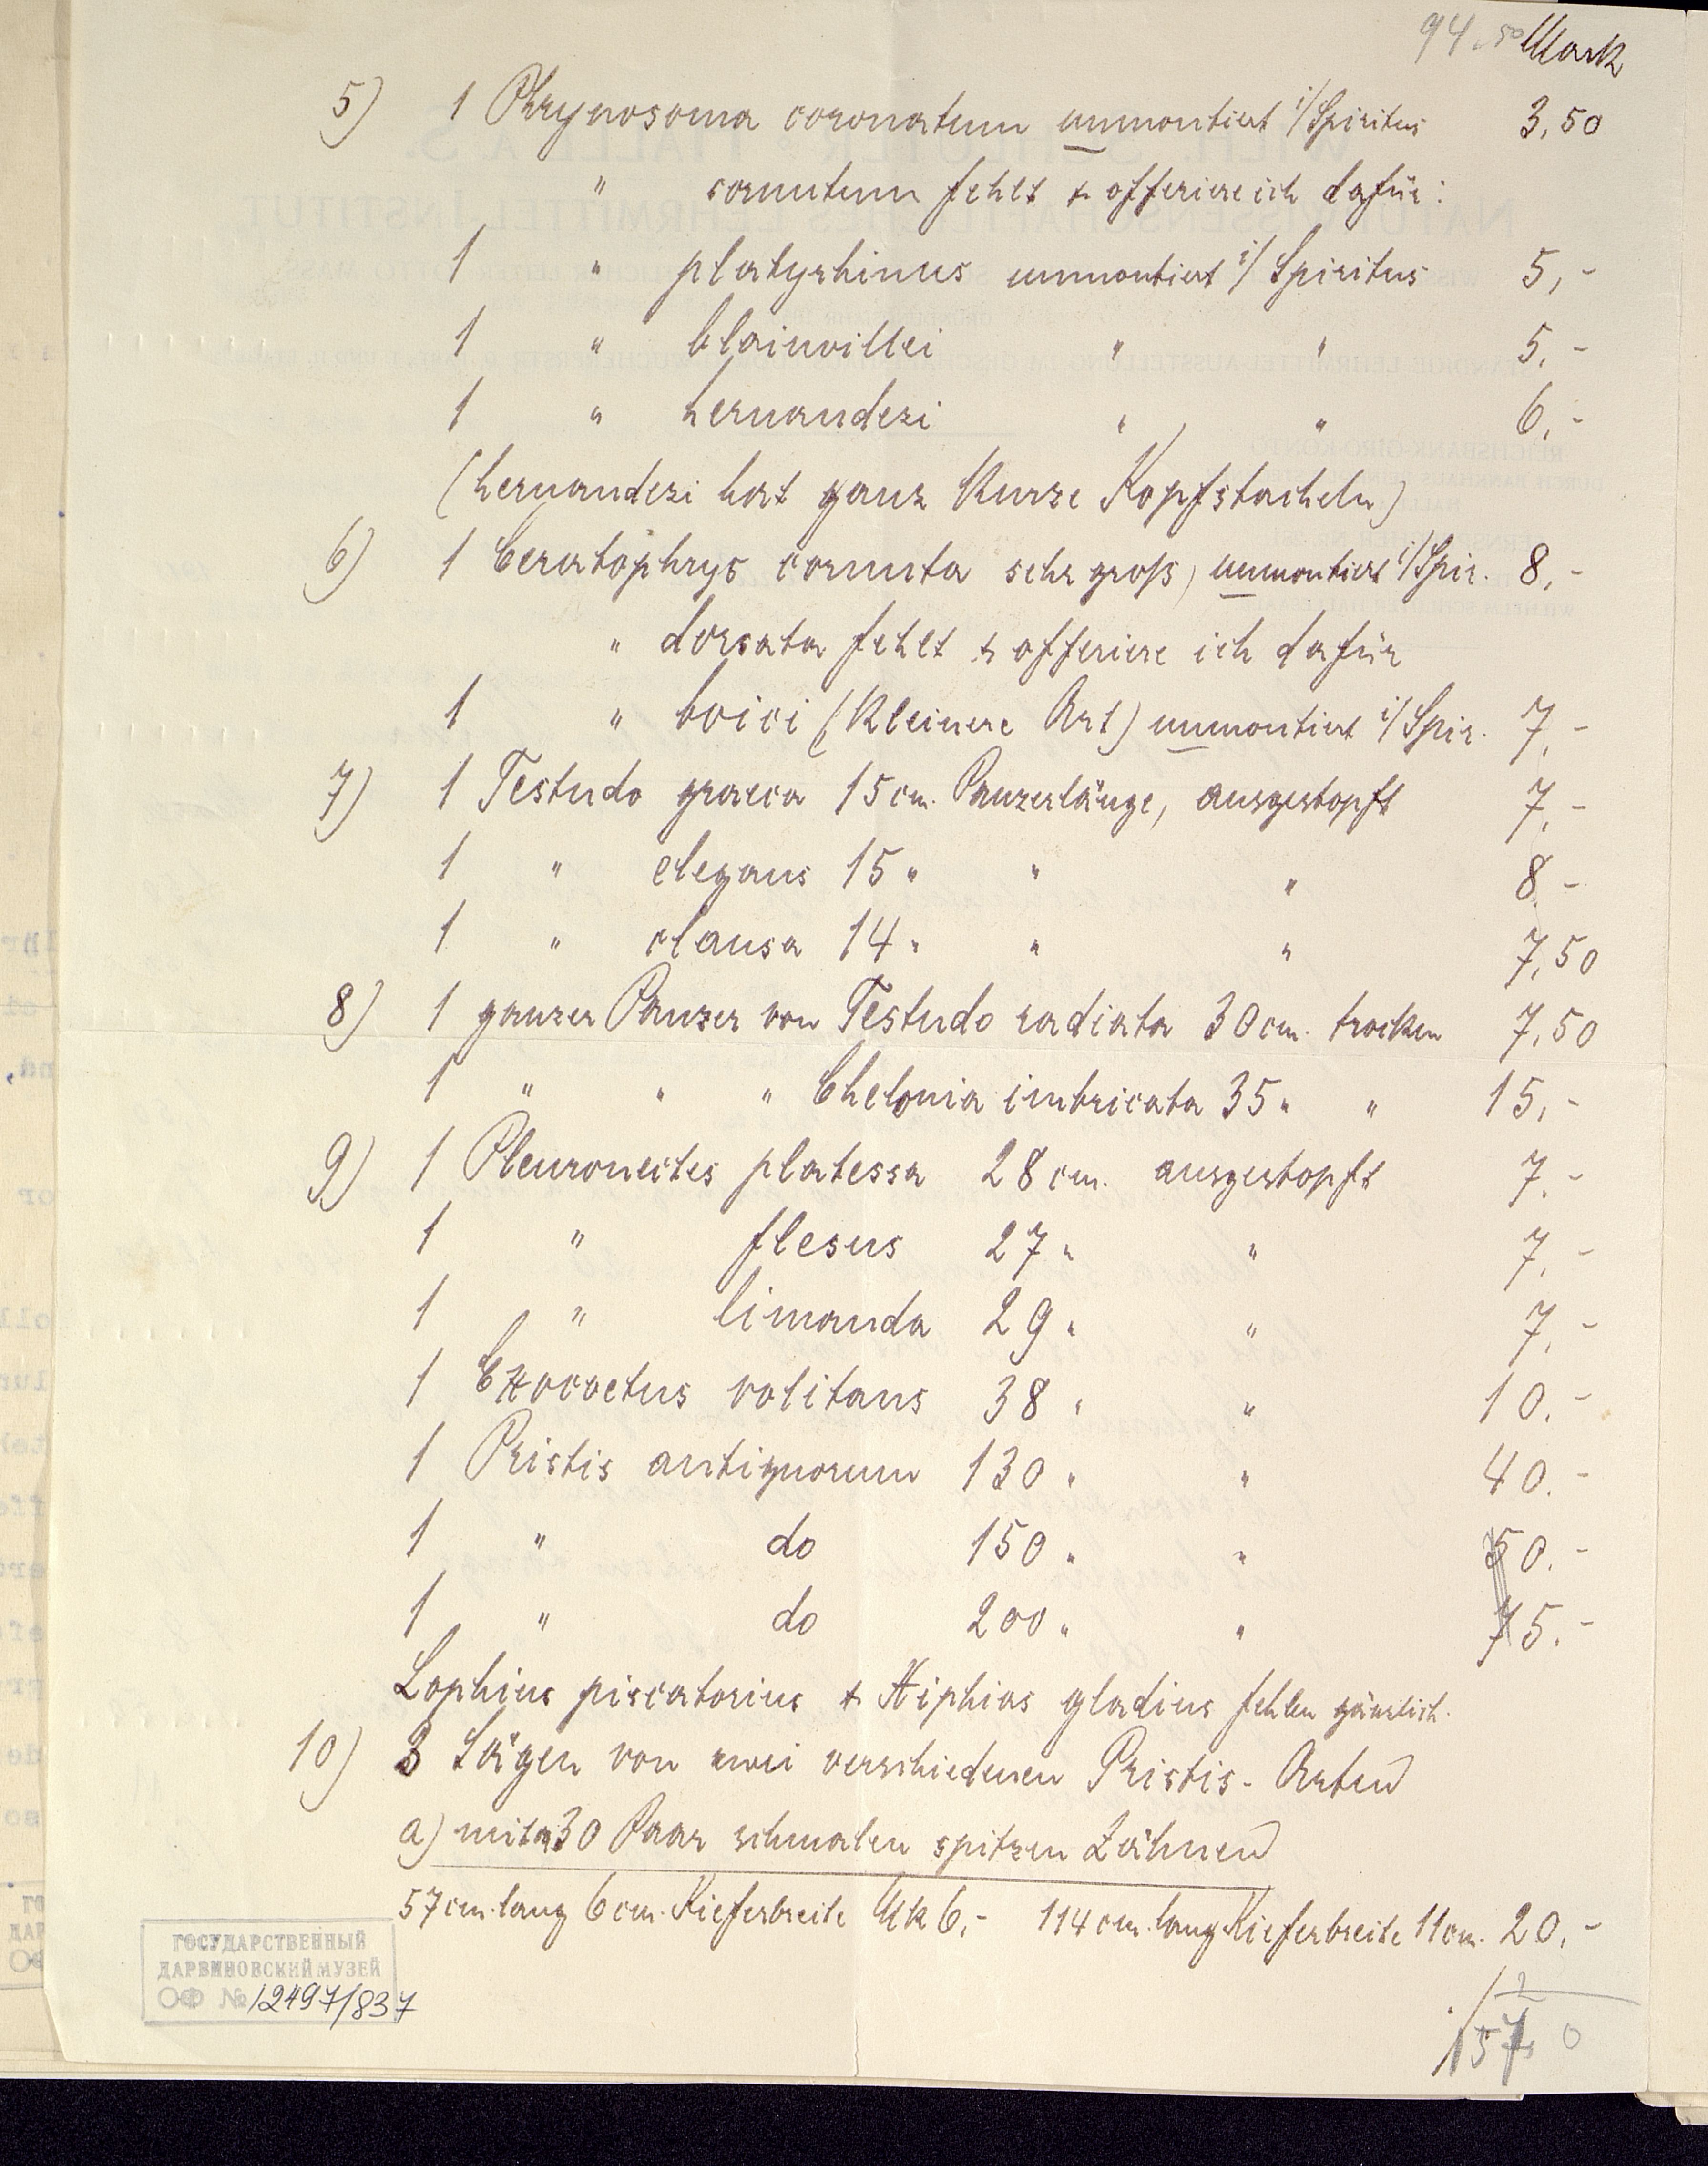 94.50 Mark
5) 1 Phrynosoma coronatum unmontiert i/Spiritus 3,50
" cornutum fehlt & offeriere ich dafür:
1 " platyrhinus unmontiert i/Spiritus 5,-
1 " blainvillei " " 5.-
1 " hernandezi " " 6.-
(hernandezi hat ganz kurze Kopfstacheln)
6) 1 Ceratophrys cornuta sehr groß, unmontiert i/Spir. 8,-
" dorsata fehlt & offeriere ich dafür
1 " boici (kleinere Art) unmontiert i/Spir. 7,-
7) 1 Testudo graeca 15 cm. Panzerlänge, ausgestopft 7,-
1 " elegans 15 " " " 8.-
1 " clausa 14 " " " 7,50
8) 1 ganzer Panzer von Testudo radiata 30 cm. trocken 7,50
1 " " " Chelonia imbricata 35 " " 15,-
9) 1 Pleuronectes platessa 28 cm. ausgestopft 7.-
1 " flesus 27 " " 7.-
1 " limanda 29 " " 7.-
1 Exocoetus volitans 38 " " 10.-
1 Pristis antiquorum 130 " " 40.-
1 " do 150 " " 50.-
1 " do 200 " " 75.-
Lophius piscatorius & Xiphias gladius fehlen gänzlich.
10) 3 Sägen von zwei verschiedenen Pristis-Arten
a) mit 30 Paar schmalen spitzen Zähnen
57 cm. lang 6 cm. Kieferbreite Mk 6,- 114 cm. lang Kieferbreite 11 cm. 20,-
ГОСУДАРСТВЕННЫЙ
ДАРВИНОВСКИЙ МУЗЕЙ
ОФ № 12497/837